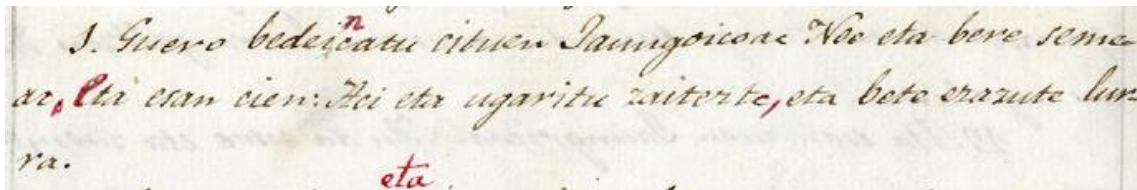 1. Guero bedeincatu cituen Jaungoicoac Noe eta bere seme-
ac, Eta esan cien: Aci eta ugaritu zaitezte, eta bete ezazute lur-
ra.
eta